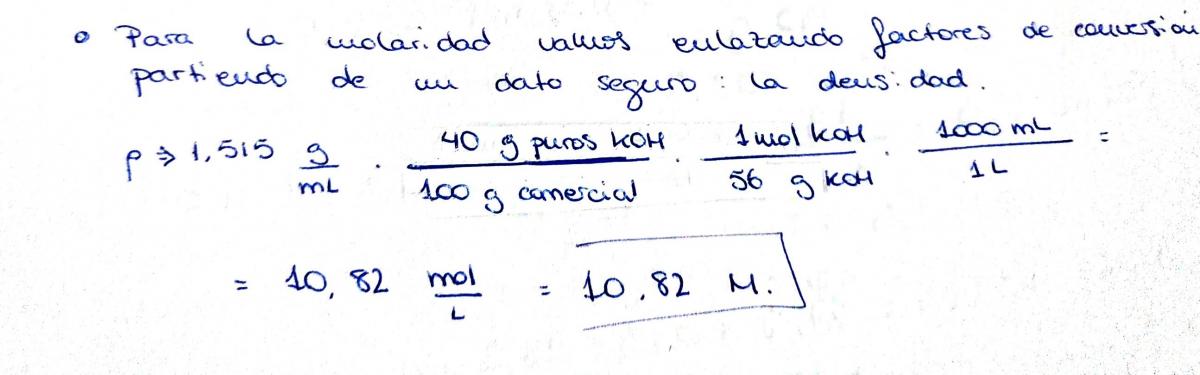 • Para la molaridad vamos enlazando factores de conversión
partiendo de un dato seguro: la densidad.
ρ ⇒ 1,515 g/mL · 40 g puros KOH/100 g comercial · 1 mol KOH/56 g KOH · 1000 mL/1 L =
= 10,82 mol/L = 10,82 M.